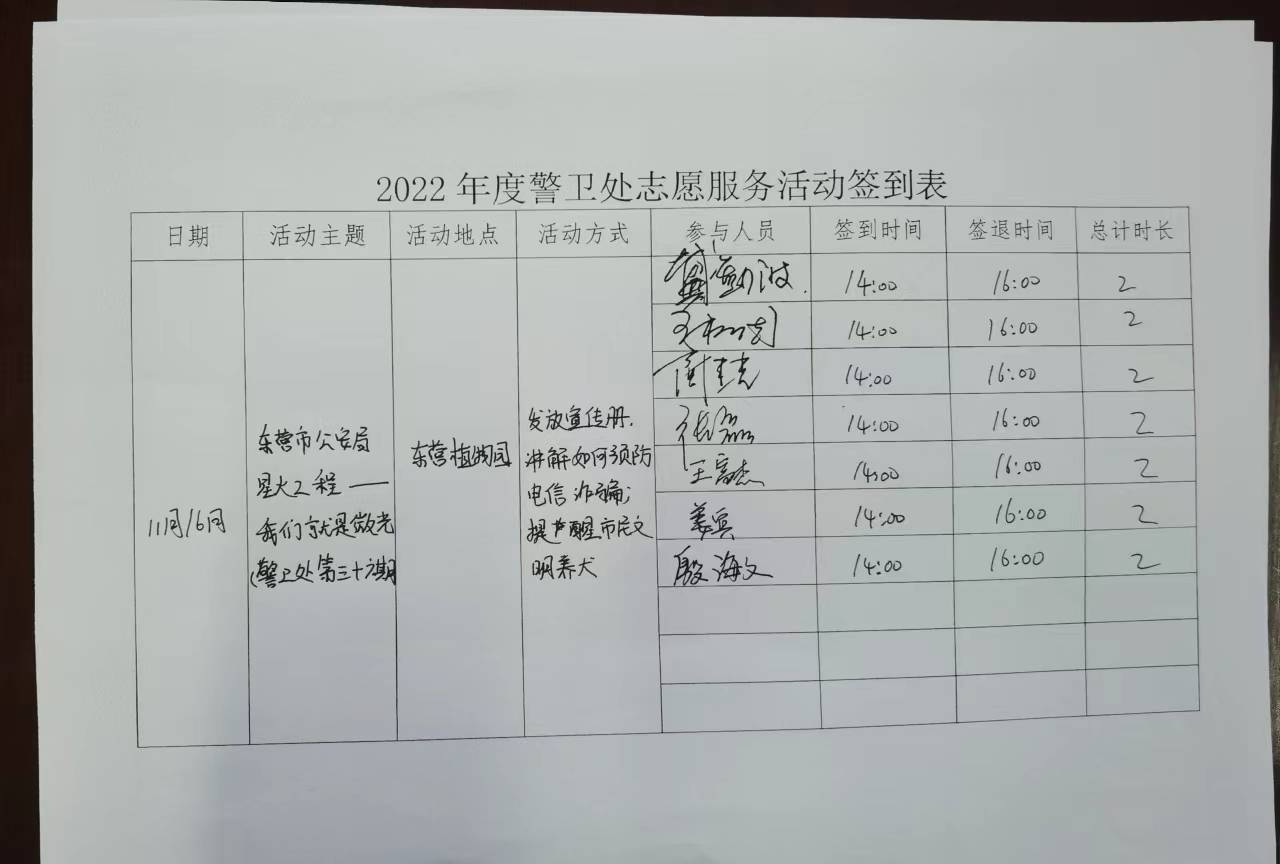 2022 年度警卫处志愿服务活动签到表
日期 活动主题 活动地点 活动方式 参与人员 签到时间 签退时间 总计时长
11月16日
东营市公安局
星火工程——
我们就是微光
(警卫处第三十六期)
东营植物园
发放宣传册,
讲解如何预防
电信诈骗;
提醒市民文
明养犬
14:00 16:00 2
14:00 16:00 2
14:00 16:00 2
张磊 14:00 16:00 2
王富杰 14:00 16:00 2
姜宾 14:00 16:00 2
殷海文 14:00 16:00 2